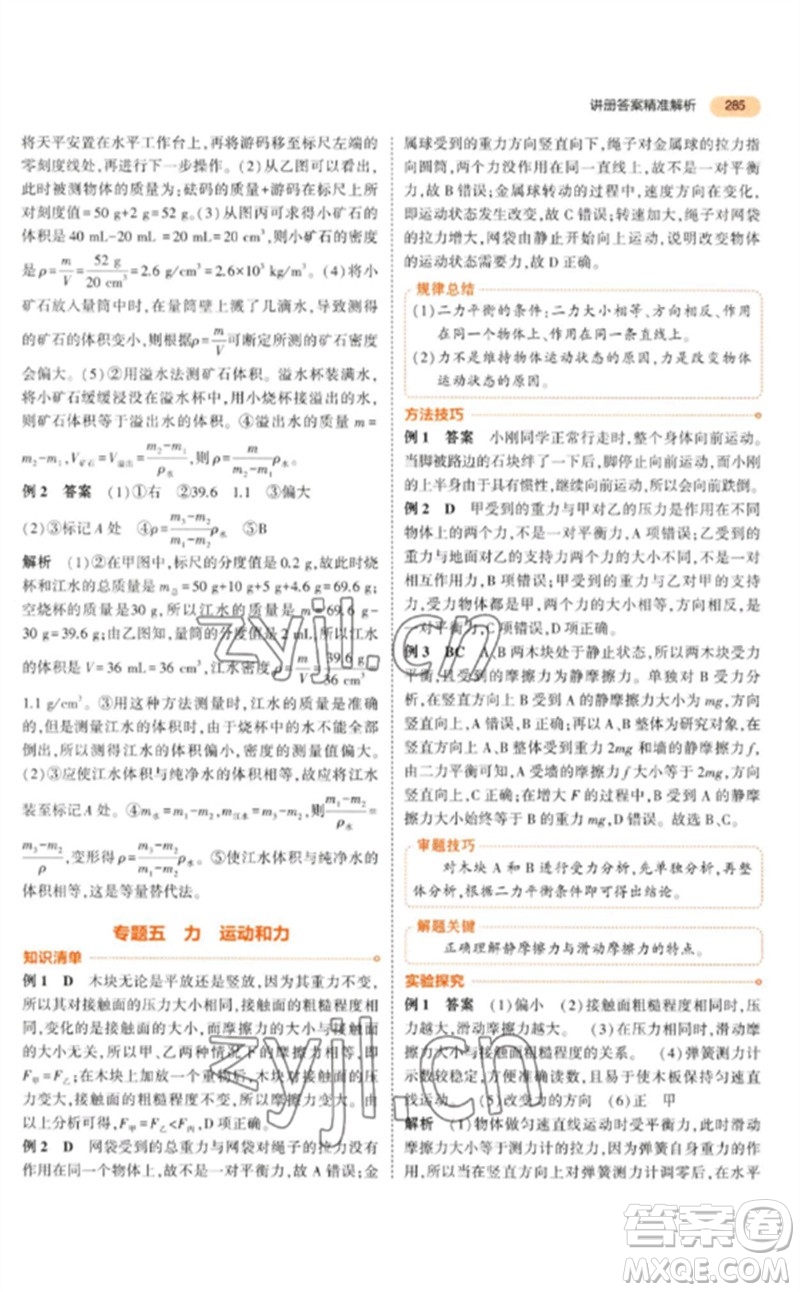 讲册答案精准解析 285
将天平安置在水平工作台上,再将游码移至标尺左端的
零刻度线处,再进行下一步操作。(2)从乙图可以看出,
此时被测物体的质量为:砝码的质量+游码在标尺上所
对刻度值=50 g+2 g=52 g。(3)从图丙可求得小矿石的
体积是 40 mL-20 mL=20 mL=20 cm³,则小矿石的密度
是ρ=m/V=52 g/20 cm³=2.6 g/cm³=2.6×10³ kg/m³。(4)将小
矿石放入量筒中时,在量筒壁上溅了几滴水,导致测得小
矿石的体积变小,则根据ρ=m/V可断定所测的矿石密度
会偏大。(5)②用溢水法测矿石体积。溢水杯装满水,
将小矿石缓缓浸没在溢水杯中,用小空杯接溢出的水,
则矿石体积等于溢出水的体积。④溢出水的质量 m=
m₂-m₁,V矿石=V溢出=(m₂-m₁)/ρ水,则ρ=m/(m₂-m₁)ρ水。
例 2 答案 (1)①右 ②39.6 1.1 ③偏大
(2)③标记 A 处 ④ρ=(m₃-m₂)/(m₁-m₂)ρ水 ⑤B
解析 (1)②在甲图中,标尺的分度值是 0.2 g,故此时烧
杯和江水的总质量是 m总=50 g+10 g+5 g+4.6 g=69.6 g;
空烧杯的质量是30 g,所以江水的质量是 m=69.6 g-
30 g=39.6 g;由乙图知,量筒的分度值是 2 mL,所以江水
的体积是 V=36 mL=36 cm³,江水的密度ρ=m/V=39.6 g/36 cm³=
1.1 g/cm³。③用这种方法测量时,江水的质量是准确
的,但测量江水的体积时,由于烧杯中的水不能全部
倒出,所以测得江水的体积偏小,密度的测量值偏大。
(2)③应使江水体积与纯净水的体积相同,则将江水
装至标记 A 处。④m水=m₁-m₂,m江水=m₃-m₂,则(m₁-m₂)/ρ水=
(m₃-m₂)/ρ,变形得ρ=(m₃-m₂)/(m₁-m₂)ρ水。⑤使江水体积与纯净水的
体积相等,这是等量替代法。
专题五 力 运动和力
知识清单
例 1 D 木块无论是平放还是竖放,因为其重力不变,
所以其对接触面的压力大小相同,接触面的粗糙程度相
同、大小不变,而摩擦力的大小与物体间的接触面积的大
小无关,所以甲、乙两种情况下的摩擦力大小相同,即
F甲=F乙;当在木块上放一个重物后,木块对接触面的压
力变大,接触面的粗糙程度不变,所以摩擦力将变大。由
以上分析可得,F甲=F乙<F丙,D项正确。
例 2 D 网袋受到的总重力与网袋对绳子的拉力没有
作用在同一个物体上,故不是一对平衡力,故 A 错误;金
属球受到的重力方向竖直向下,绳子对金属球的拉力指
向圆筒,两个力没有作用在同一直线上,故不是一对平衡
力,故 B 错误;金属球转动的过程中,速度方向在变化,
即运动状态发生改变,故 C 错误;转速加大,绳子对网袋
的拉力增大,网袋由静止开始向上运动,说明改变物体
的运动状态需要力,故 D 正确。
规律总结
(1)二力平衡的条件:二力大小相等、方向相反、作用
在同一个物体上、作用在同一条直线上。
(2)力不是维持物体运动状态的原因,力是改变物体
运动状态的原因。
方法技巧
例 1 答案 小刚同学正常行走时,整个身体向前运动。
当脚被路边的石块绊了一下后,脚停止向前运动,而小刚
的上半身由于具有惯性,继续向前运动,所以会向前跌倒。
例 2 D 甲受到的重力与甲对乙的压力是作用在不同
物体上的两个力,不是一对平衡力,A 项错误;乙受到的
重力与地面对乙的支持力这两个力的大小不同,不是一
对相互作用力,B 项错误;甲受到的重力与乙对甲的支持
力,受力物体都是甲,两个力的大小相等、方向相反,是
一对平衡力,C 项错误,D 项正确。
例 3 BC A、B 两木块处于静止状态,所以两木块受力
平衡,其受到的静摩擦力大小不变。单独对 B 受力分
析,在竖直方向上,B 受到 A 的静摩擦力大小是 mg,方向
竖直向上,A 错误,B 正确;再以 A、B 整体为研究对象,在
竖直方向上,受到竖直向下的重力 2mg 和墙的静摩擦力,
由二力平衡可知,A 受墙的静摩擦力 f 大小等于 2mg,方
向竖直向上,C 正确;在增大 F 的过程中,B 受到 A 的静
摩擦力大小始终等于 B 的重力 mg,D 错误。故选 BC。
审题技巧
对木块 A 和 B 进行受力分析,先单独分析,再整
体分析,根据二力平衡条件即可得出结论。
解题关键
正确理解静摩擦力与滑动摩擦力的特点。
实验探究
例 1 答案 (1)偏小 (2)接触面粗糙程度相同时,压
力越大,滑动摩擦力越大。 (3)在压力相同时,滑动摩
擦力大小与接触面粗糙程度的关系。 (4)弹簧测力计
示数较稳定,方便准确读数,且不需使木板保持匀速直
线运动。 (5)改变力的方向 (6)正 甲
解析 (1)物体做匀速直线运动时受平衡力,此时滑动
摩擦力大小等于测力计的拉力,因为弹簧自身重力的影
响,在竖直方向上对弹簧测力计调零后,在水平
zyjl.cn
zyjl.cn
答案圈
MXQE.COM